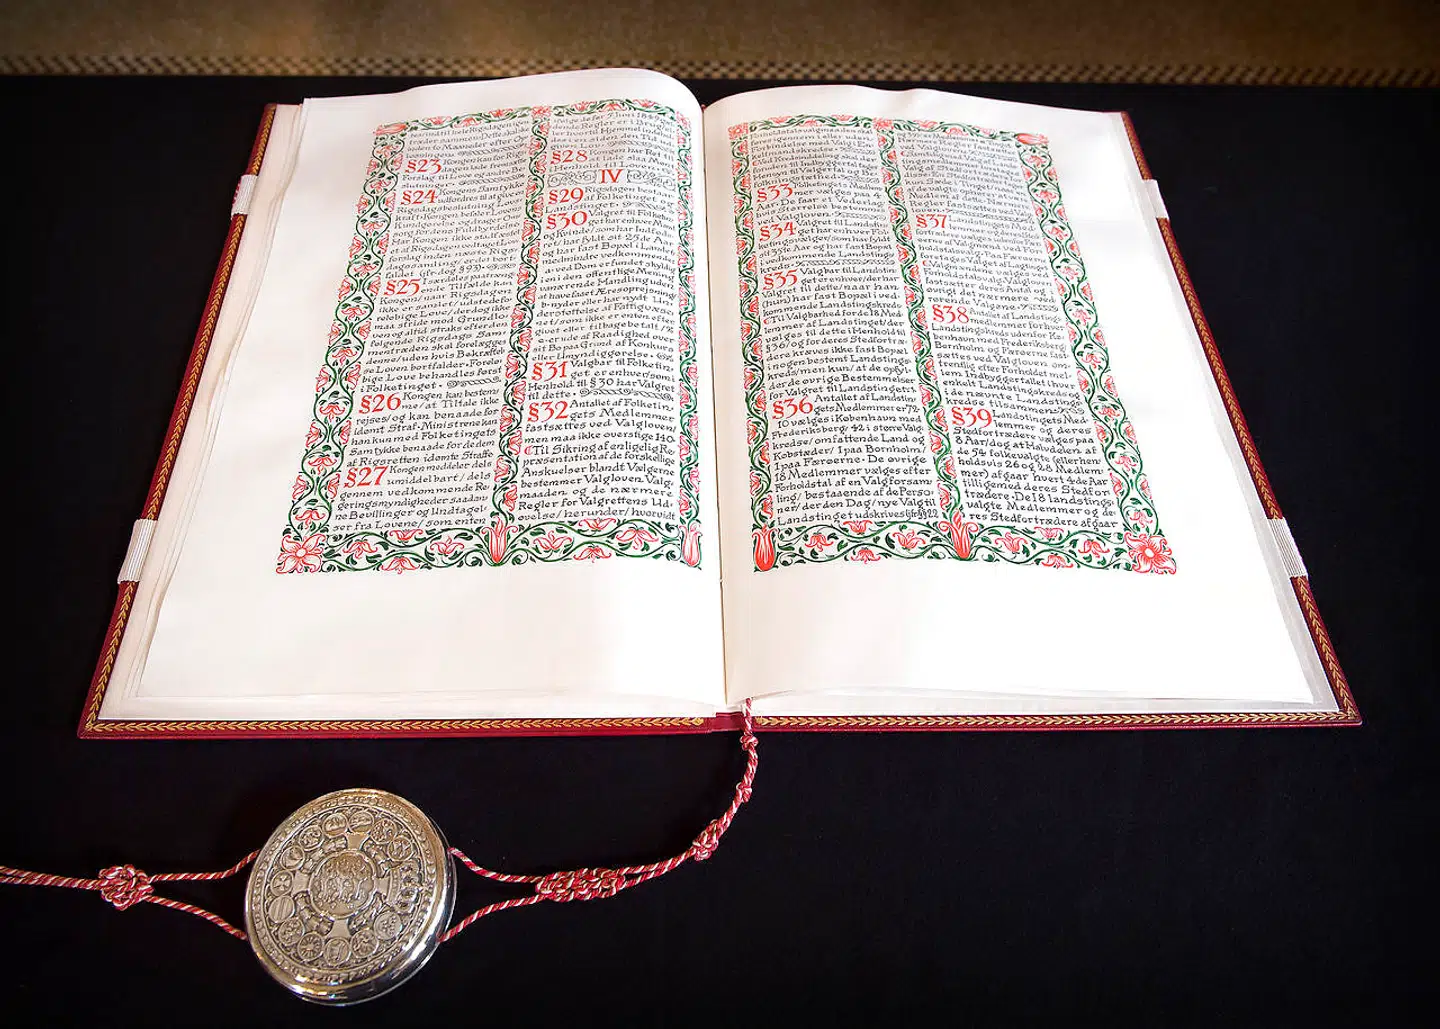 bestind til hele Rigsdagen igen
træder sammen. Dette skal ske
inden to Maaneder efter
§23 Kongen kan for Rigs
dagen lade fremsætte
Forslag til Love og andre Be
slutninger.
§24 Kongens Samtykke
udfordres til at give en
Rigsdagsbeslutning Lovs
kraft. Kongen befaler Lovens
Kundgørelse og drager Om
sorg for dens Fuldbyrdelse.
Har Kongen ikke stadfæst
et af Rigsdagen vedtaget Lov
forslag inden næste Rigs
dagssamling/ er det bort
faldet (jfr. dog §93).
§25 I særdeles paatræng
ende Tilfælde kan
Kongen/ naar Rigsdagen
ikke er samlet/ udstede fo
reløbige Love/ der dog ikke
maa stride mod Grundlo
ven og altid straks efter den
følgende Rigsdags Sam
mentræden skal forelægges
denne/ uden hvis Bekræftel
se Loven bortfalder. Forelø
bige Love behandles først
i Folketinget.
§26 Kongen kan bestem
me/ at Tiltale ikke
rejses/ og kan benaade for
idømt Straf. Ministrene kan
han kun med Folketingets
Samtykke benaade for de dem
af Rigsretten idømte Straffe
§27 Kongen meddeler dels
umiddelbart/ dels
gennem vedkommende Re
geringsmyndigheder saadan
ne Bevillinger og Undtagel
ser fra Lovene/ som enten
ifølge de før 5 Juni 1849
dende Regler er i Brug
eller hvortil Hjemmel indehol
des i en siden den Tid
Lov.
§28 Kongen har Ret til
at lade slaa Mønt
i Henhold til Loven.
IV
§29 Rigsdagen bestaar
af Folketinget og
Landstinget.
§30 Valgret til Folketin
get har enhver Mand
og Kvinde/ som har Indføds
ret/ har fyldt 25de Aar
og har fast Bopæl i Landet
medmindre vedkommende
a· ved Dom er fundet skyldig
i en i den offentlige Mening
vanærende Handling uden
at have faaet Æresoprejsning
b· nyder eller har nydt Un
derstøttelse af Fattigvæse
net/ som ikke er enten efter
givet eller tilbagebetalt/ c·
er ude af Raadighed over
sit Bo paa Grund af Konkurs
eller Umyndiggørelse.
§31 Valgbar til Folketin
get er enhver/ som i
Henhold til §30 har Valgret
til dette.
§32 Antallet af Folketin
gets Medlemmer
fastsættes ved Valgloven/
men maa ikke overstige 140.
Til Sikring af en ligelig Re
præsentation af de forskellige
Anskuelser blandt Vælgerne
bestemmer Valgloven Valg
maaden og de nærmere
Regler for Valgrettens Ud
øvelse/ herunder/ hvorvidt
Forholdstalsvalgmaaden skal
føres igennem i eller uden
Forbindelse med Valg i En
keltmandskredse.
Ved Kredsinddeling skal der
foruden til Indbyggertal tages
Hensyn til Vælgertal og Be
folkningstæthed.
§33 Folketingets Medlem
mer vælges paa 4
Aar. De faar et Vederlag
hvis Størrelse bestemmes
ved Valgloven.
§34 Valgret til Landstin
get har enhver Fol
ketingsvælger/ som har fyldt
sit 35te Aar og har fast Bopæl
i vedkommende Landstings
kreds.
§35 Valgbar til Landstin
get er enhver/ der har
Valgret til dette/ naar han
(hun) har fast Bopæl i ved
kommende Landstingskreds
Til Valgbarhed for de 18 Med
lemmer af Landstinget/ der
vælges til dette i Henhold til
§36/ og for deres Stedfortræ
dere kræves ikke fast Bopæl
i nogen bestemt Landstings
kreds/ men kun/ at de opfyl
der de øvrige Bestemmelser
for Valgret til Landstinget.
§36 Antallet af Landstin
gets Medlemmer er 72.
10 vælges i København med
Frederiksberg/ 42 i større Valg
kredse/ omfattende Land og
Købstæder/ 1 paa Bornholm/
1 paa Færøerne. De øvrige
18 Medlemmer vælges efter
Forholdstal af en Valgforsam
ling/ bestaaende af de Perso
ner/ der den Dag/ nye Valg til
Landstinget udskrives (jfr. §22
§37 Landstingets Medlem
mer og deres Stedfor
§38 Antallet af Landstings
medlemmer for hver
Landstingskreds uden for Kø
benhavn med Frederiksberg
Bornholm og Færøerne fast
sættes ved Valgloven
trentlig efter Forholdet mel
lem Indbyggertallet i hver
enkelt Landstingskreds og i
de nævnte Landstings
kredse tilsammen.
§39 Landstingets Med
lemmer og deres
Stedfortrædere vælges paa
8 Aar/ dog at Halvdelen af
de 54 folkevalgte (eller hen
holdsvis 26 og 28 Medlem
mer) afgaar hvert 4de Aar
tilligemed deres Stedfor
trædere. De 18 landstings
valgte Medlemmer og de
res Stedfortrædere afgaar